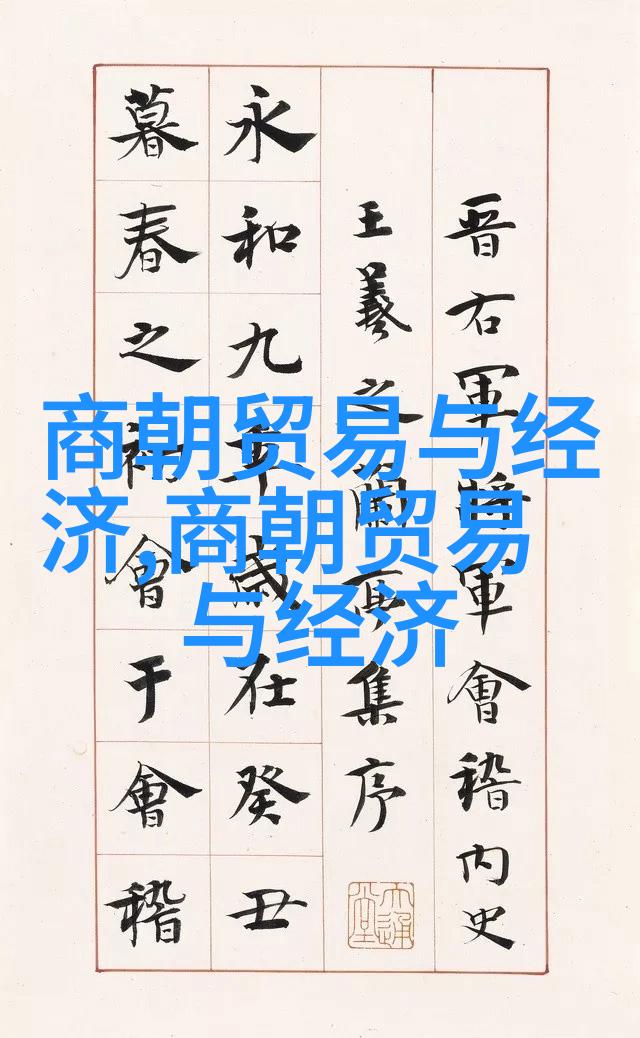 晋右軍將軍會稽内史
王羲之蘭亭集序
永和九年歲在癸丑
暮春之禊會于會稽
商朝贸易与经
济,商朝贸易
与经济